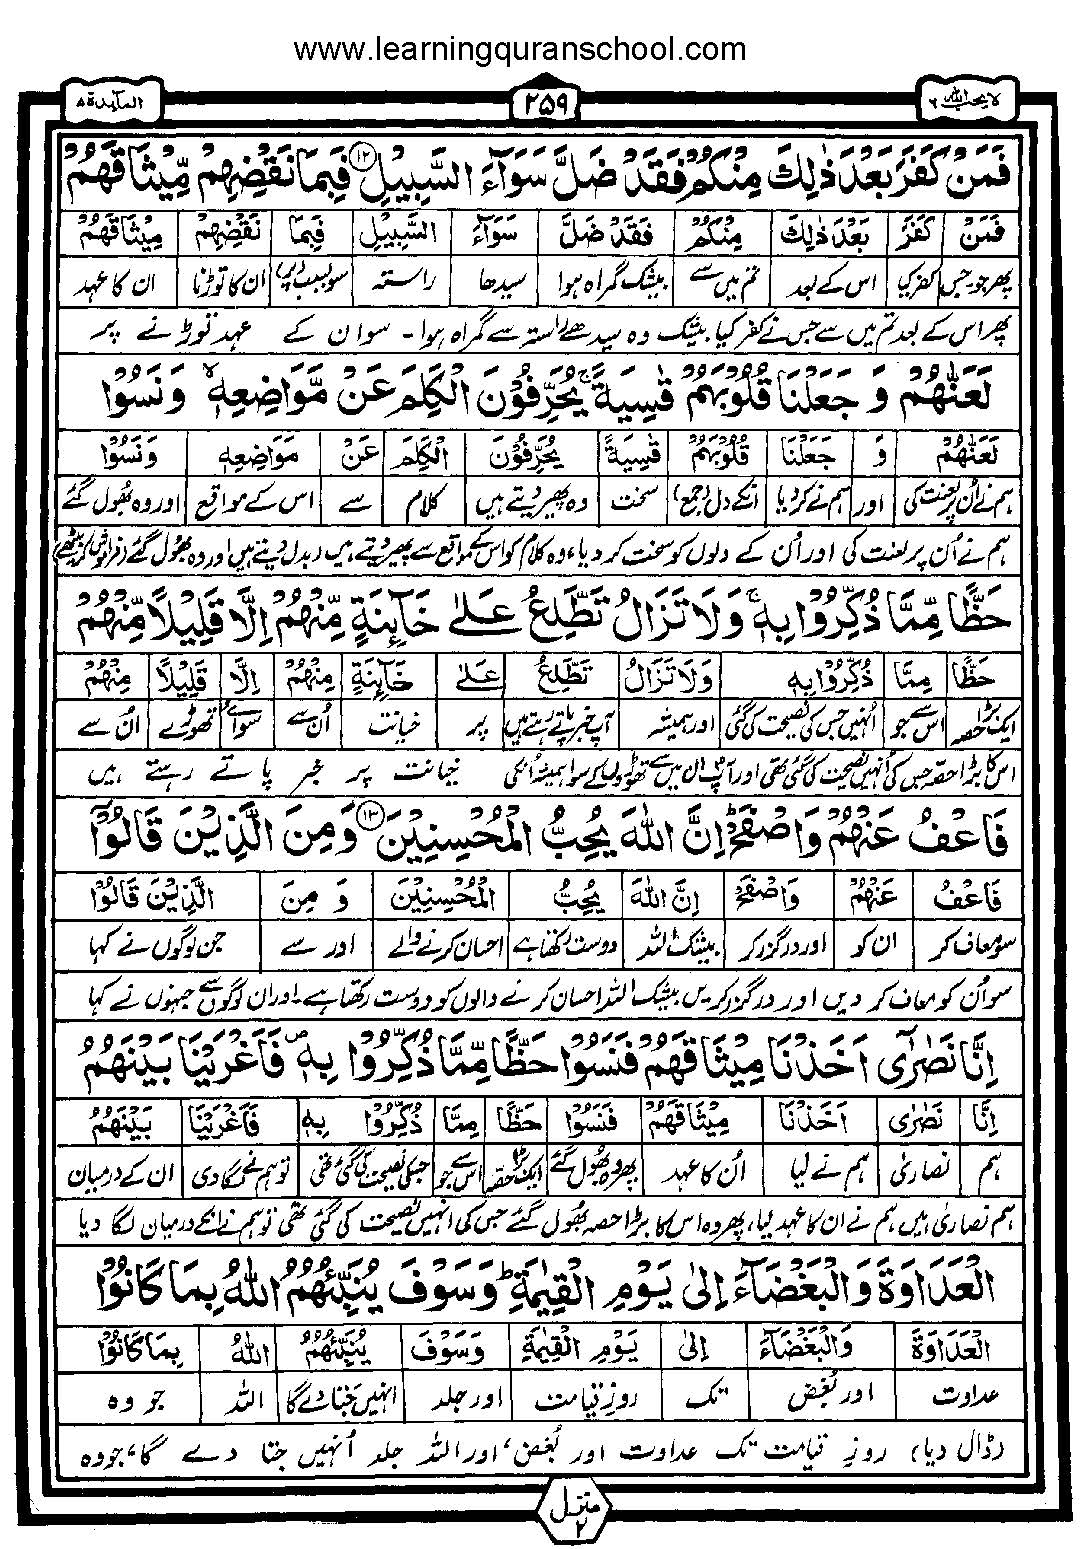 www.learningquranschool.com
لا يحب الله ٦
٢٥٩
المآئدة ٥
فَمَنْ كَفَرَ بَعْدَ ذٰلِكَ مِنْكُمْ فَقَدْ ضَلَّ سَوَآءَ السَّبِيْلِ ۝١٢ فَبِمَا نَقْضِهِمْ مِّيْثَاقَهُمْ
فَمَنْ كَفَرَ بَعْدَ ذٰلِكَ مِنْكُمْ فَقَدْ ضَلَّ سَوَآءَ السَّبِيْلِ فَبِمَا نَقْضِهِمْ مِيْثَاقَهُمْ
پھر جو جس کفر کیا اس کے بعد تم میں سے بیشک گمراہ ہوا سیدھا راستہ سو بسبب (پر) ان کا توڑنا ان کا عہد
پھر اس کے بعد تم میں سے جس نے کفر کیا بیشک وہ سیدھے راستہ سے گمراہ ہوا ۔ سو ان کے عہد توڑنے پر
لَعَنّٰهُمْ وَ جَعَلْنَا قُلُوْبَهُمْ قٰسِيَةً ۚ يُحَرِّفُوْنَ الْكَلِمَ عَنْ مَّوَاضِعِهٖ ۙ وَنَسُوْا
لَعَنّٰهُمْ وَ جَعَلْنَا قُلُوْبَهُمْ قٰسِيَةً يُحَرِّفُوْنَ الْكَلِمَ عَنْ مَوَاضِعِهٖ وَنَسُوْا
ہم نے اُن پر لعنت کی اور ہم نے کردیا انکے دل (جمع) سخت وہ پھیر دیتے ہیں کلام سے اس کے مواقع اور وہ بھول گئے
ہم نے اُن پر لعنت کی اور اُن کے دلوں کو سخت کر دیا، وہ کلام کو اس کے مواقع سے پھیر دیتے ہیں (بدل دیتے ہیں) اور وہ بھول گئے (فراموش کر بیٹھے)
حَظًّا مِّمَّا ذُكِّرُوْا بِهٖ ۚ وَلَا تَزَالُ تَطَّلِعُ عَلٰى خَآئِنَةٍ مِّنْهُمْ اِلَّا قَلِيْلًا مِّنْهُمْ
حَظًّا مِمَّا ذُكِّرُوْا بِهٖ وَلَا تَزَالُ تَطَّلِعُ عَلٰى خَآئِنَةٍ مِنْهُمْ اِلَّا قَلِيْلًا مِنْهُمْ
ایک بڑا حصہ اس سے جو انہیں جس کی نصیحت کی گئی اور ہمیشہ آپ خبر پاتے رہتے ہیں پر خیانت اُن سے سوائے تھوڑے اُن سے
اس کا بڑا حصہ جس کی انہیں نصیحت کی گئی تھی اور آپ ان میں سے تھوڑوں کے سوا ہمیشہ انکی خیانت پر خبر پاتے رہتے ہیں
فَاعْفُ عَنْهُمْ وَاصْفَحْ ۭ اِنَّ اللّٰهَ يُحِبُّ الْمُحْسِنِيْنَ ۝١٣ وَمِنَ الَّذِيْنَ قَالُوْٓا
فَاعْفُ عَنْهُمْ وَاصْفَحْ اِنَّ اللّٰهَ يُحِبُّ الْمُحْسِنِيْنَ وَ مِنَ الَّذِيْنَ قَالُوْٓا
سو معاف کر ان کو اور درگزر کر بیشک اللہ دوست رکھتا ہے احسان کرنے والے اور سے جن لوگوں نے کہا
سو اُن کو معاف کر دیں اور درگزر کریں بیشک اللہ احسان کرنے والوں کو دوست رکھتا ہے۔ اور ان لوگوں سے جنہوں نے کہا
اِنَّا نَصٰرٰٓى اَخَذْنَا مِيْثَاقَهُمْ فَنَسُوْا حَظًّا مِّمَّا ذُكِّرُوْا بِهٖ ۠ فَاَغْرَيْنَا بَيْنَهُمُ
اِنَّا نَصٰرٰى اَخَذْنَا مِيْثَاقَهُمْ فَنَسُوْا حَظًّا مِمَّا ذُكِّرُوْا بِهٖ فَاَغْرَيْنَا بَيْنَهُمُ
ہم نصاریٰ ہم نے لیا اُن کا عہد پھر وہ بھول گئے ایک بڑا حصہ اس سے جو جسکی نصیحت کی گئی تھی تو ہم نے لگادی ان کے درمیان
ہم نصاریٰ ہیں ہم نے ان کا عہد لیا، پھر وہ اس کا بڑا حصہ بھول گئے جس کی انہیں نصیحت کی گئی تھی تو ہم نے انکے درمیان لگا دیا
الْعَدَاوَةَ وَالْبَغْضَآءَ اِلٰى يَوْمِ الْقِيٰمَةِ ۭ وَسَوْفَ يُنَبِّئُهُمُ اللّٰهُ بِمَا كَانُوْا
الْعَدَاوَةَ وَالْبَغْضَآءَ اِلٰى يَوْمِ الْقِيٰمَةِ وَسَوْفَ يُنَبِّئُهُمُ اللّٰهُ بِمَا كَانُوْا
عداوت اور بُغض تک روز قیامت اور جلد انہیں جتا دے گا اللہ جو وہ
(ڈال دیا) روزِ قیامت تک عداوت اور بُغض، اور اللہ جلد اُنہیں جتا دے گا، جو وہ
منزل ٢